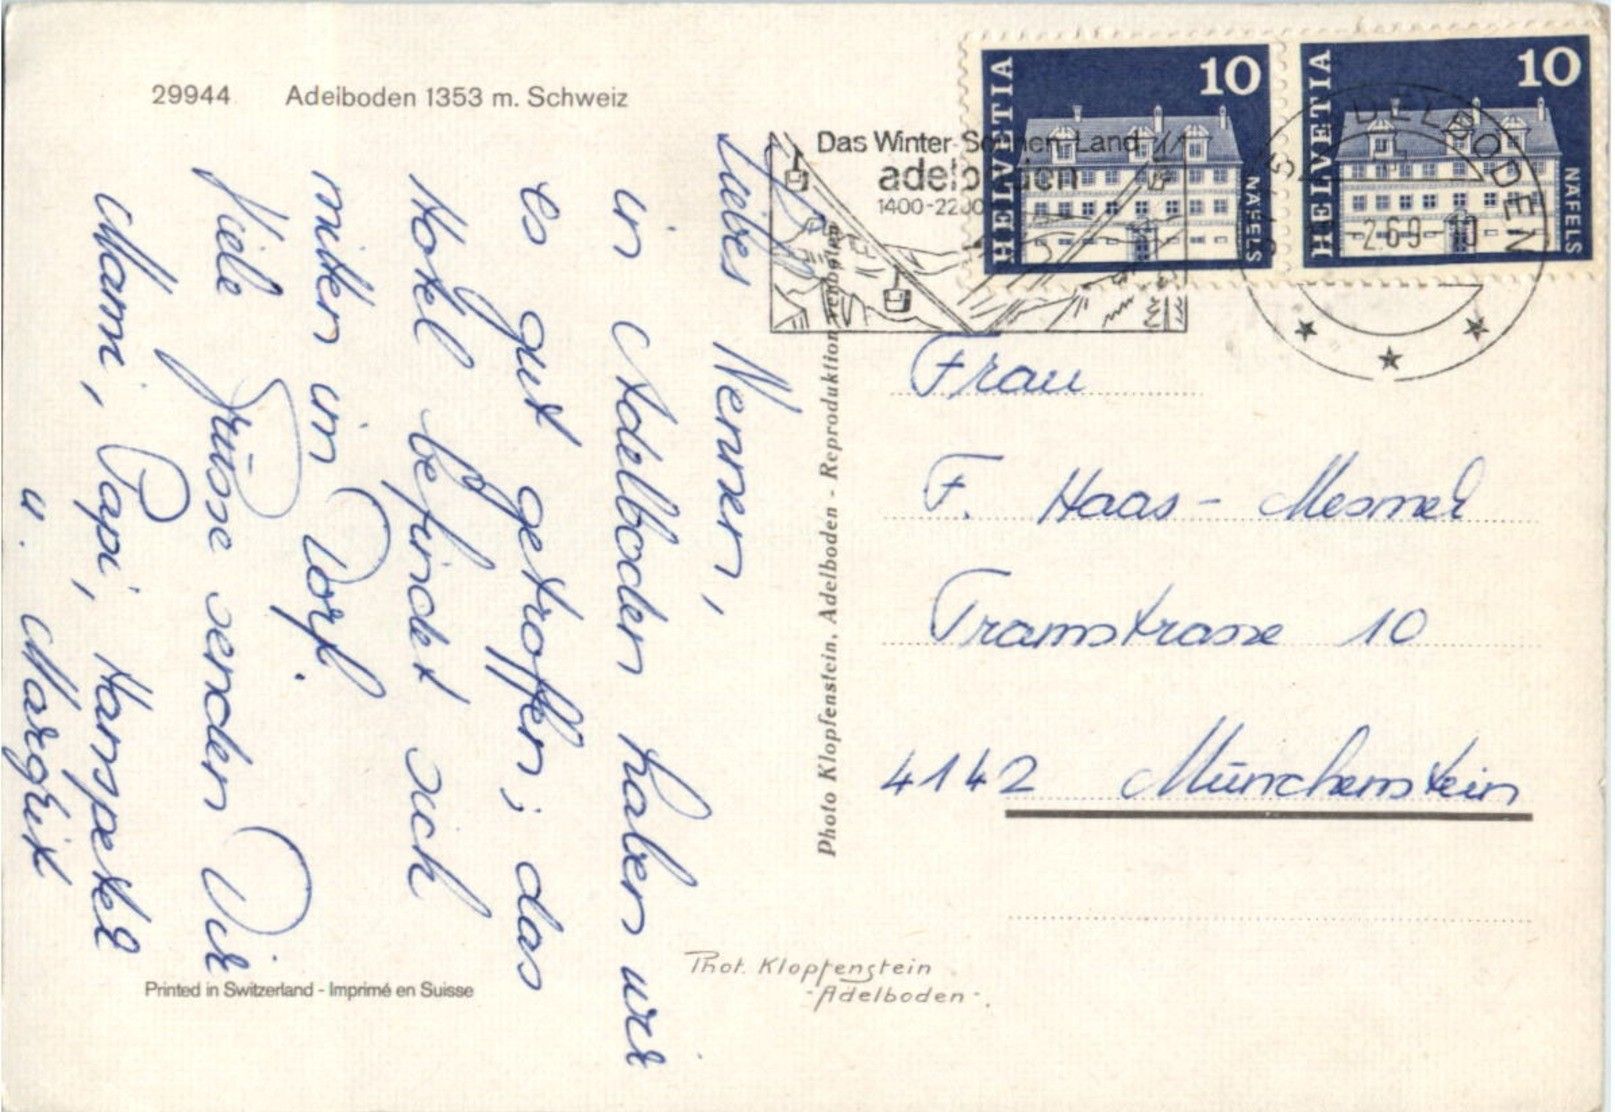 29944 Adelboden 1353 m. Schweiz
Liebes Nenner,
in Adelboden haben wir
es gut getroffen; das
Hotel befindet sich
mitten im Dorf.
Viele Grüsse senden Dir
Mami, Papi, Hanspeter
u. Margrit
Printed in Switzerland - Imprimé en Suisse
Photo Klopfenstein, Adelboden - Reproduktion verboten
Phot. Klopfenstein
- Adelboden -.
Das Winter-Sonnen-Land
adelboden
1400-2200
HELVETIA 10 NÄFELS
HELVETIA 10 NÄFELS
ADELBODEN
-2.69-10
Frau
F. Haas - Mesmer
Tramstrasse 10
4142 Münchenstein